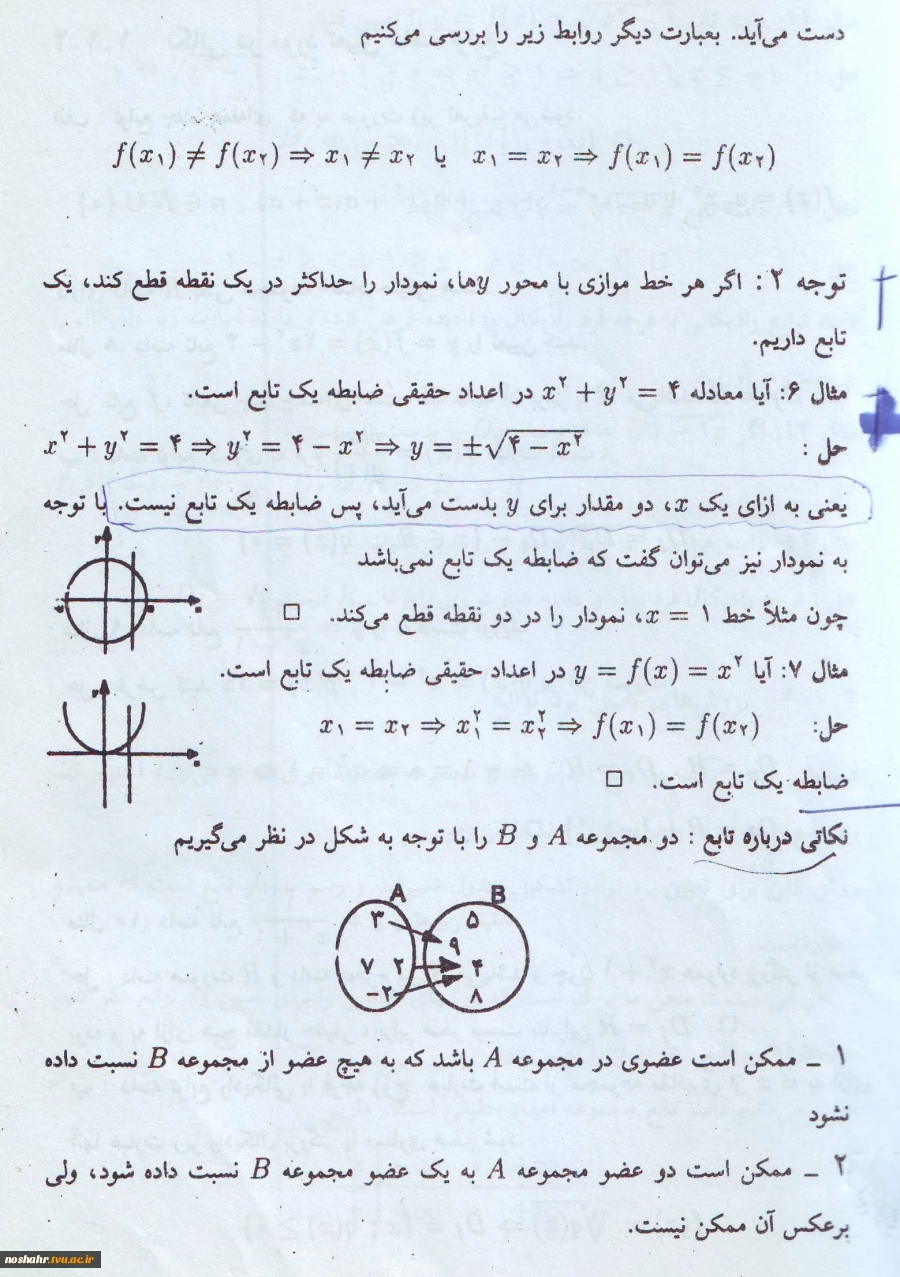 دست می‌آید. بعبارت دیگر روابط زیر را بررسی می‌کنیم
f(x۱) ≠ f(x۲) ⇒ x۱ ≠ x۲ یا x۱ = x۲ ⇒ f(x۱) = f(x۲)
توجه ۲ : اگر هر خط موازی با محور yها، نمودار را حداکثر در یک نقطه قطع کند، یک
تابع داریم.
مثال ۶: آیا معادله x² + y² = ۴ در اعداد حقیقی ضابطه یک تابع است.
حل : x² + y² = ۴ ⇒ y² = ۴ − x² ⇒ y = ±√(۴ − x²)
یعنی به ازای یک x، دو مقدار برای y بدست می‌آید، پس ضابطه یک تابع نیست. با توجه
به نمودار نیز می‌توان گفت که ضابطه یک تابع نمی‌باشد
چون مثلاً خط x = ۱، نمودار را در دو نقطه قطع می‌کند. □
مثال ۷: آیا y = f(x) = x² در اعداد حقیقی ضابطه یک تابع است.
حل: x۱ = x۲ ⇒ x۱² = x۲² ⇒ f(x۱) = f(x۲)
ضابطه یک تابع است. □
نکاتی درباره تابع : دو مجموعه A و B را با توجه به شکل در نظر می‌گیریم
A B
۳ ۵
۹
۷ ۲ ۴
−۲ ۸
۱ ـ ممکن است عضوی در مجموعه A باشد که به هیچ عضو از مجموعه B نسبت داده
نشود
۲ ـ ممکن است دو عضو مجموعه A به یک عضو مجموعه B نسبت داده شود، ولی
برعکس آن ممکن نیست.
noshahr.tvu.ac.ir